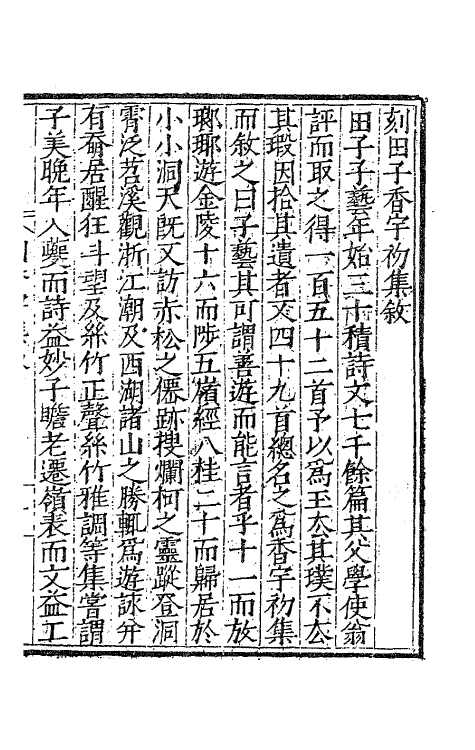 刻田子香宇初集敘
田子子藝年始三十積詩文七千餘篇其父學使翁
評而取之得一百五十二首予以爲玉不去其璞不去
其瑕因拾其遺者又四十九首總名之爲香宇初集
而敘之曰子藝其可謂善遊而能言者乎十一而放
瑯琊遊金陵十六而陟五嶺經八桂二十而歸居於
小小洞天旣又訪赤松之僊跡搜爛柯之靈蹤登洞
霄泛苕溪觀浙江潮及西湖諸山之勝輒爲遊詠并
有奋居醒狂斗望及絲竹正聲絲竹雅調等集嘗謂
子美晚年入夔而詩益妙子瞻老遷嶺表而文益工